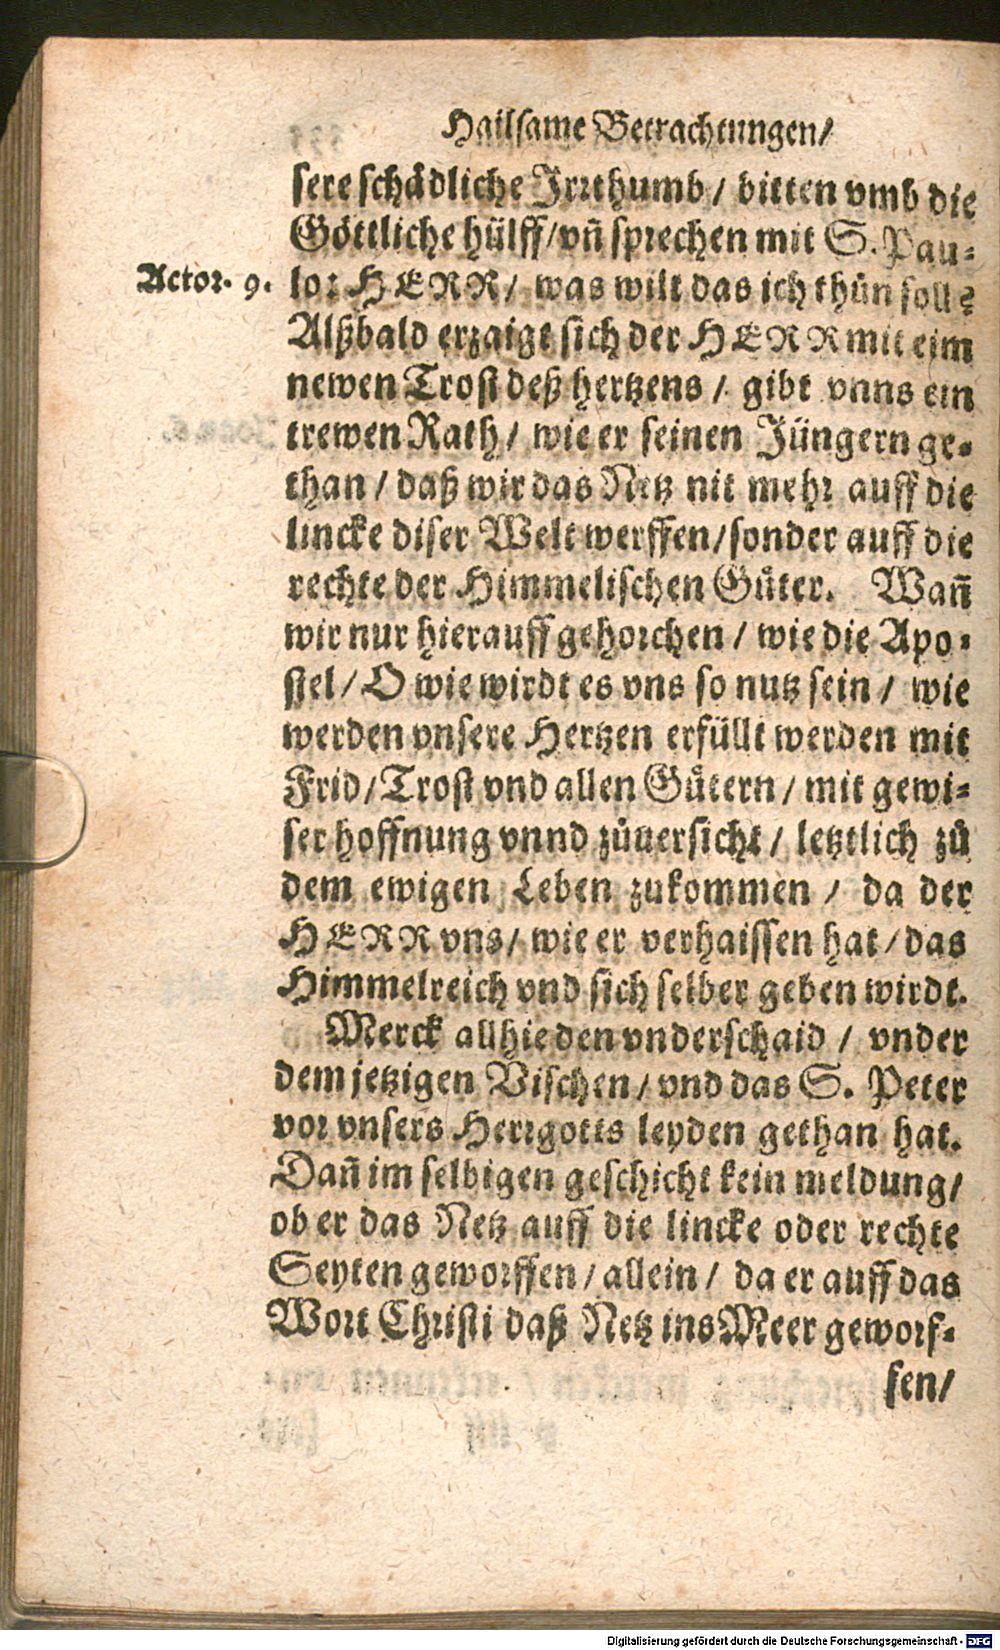 Hailsame Betrachtungen/
sere schådliche Irrthumb / bitten vmb die
Göttliche hülff/vñ sprechen mit S. Pau-
Actor. 9.
lo: HERR/ was wilt das ich thůn soll?
Alßbald erzaigt sich der HERR mit eim
newen Trost deß hertzens / gibt vnns ein
trewen Rath/ wie er seinen Jüngern ge-
than / daß wir das Netz nit mehr auff die
lincke diser Welt werffen/sonder auff die
rechte der Himmelischen Gůter. Wañ
wir nur hierauff gehorchen / wie die Apo-
stel/ O wie wirdt es vns so nutz sein / wie
werden vnsere Hertzen erfüllt werden mit
Frid/Trost vnd allen Gůtern / mit gewi-
ser hoffnung vnnd zůuersicht / letztlich zů
dem ewigen Leben zukommen / da der
HERR vns/ wie er verhaissen hat / das
Himmelreich vnd sich selber geben wirdt.
Merck allhie den vnderschaid / vnder
dem jetzigen Vischen/ vnd das S. Peter
vor vnsers Herrgotts leyden gethan hat.
Dañ im selbigen geschicht kein meldung/
ob er das Netz auff die lincke oder rechte
Seyten geworffen / allein / da er auff das
Wort Christi daß Netz ins Meer geworf-
fen/
Digitalisierung gefördert durch die Deutsche Forschungsgemeinschaft - DFG